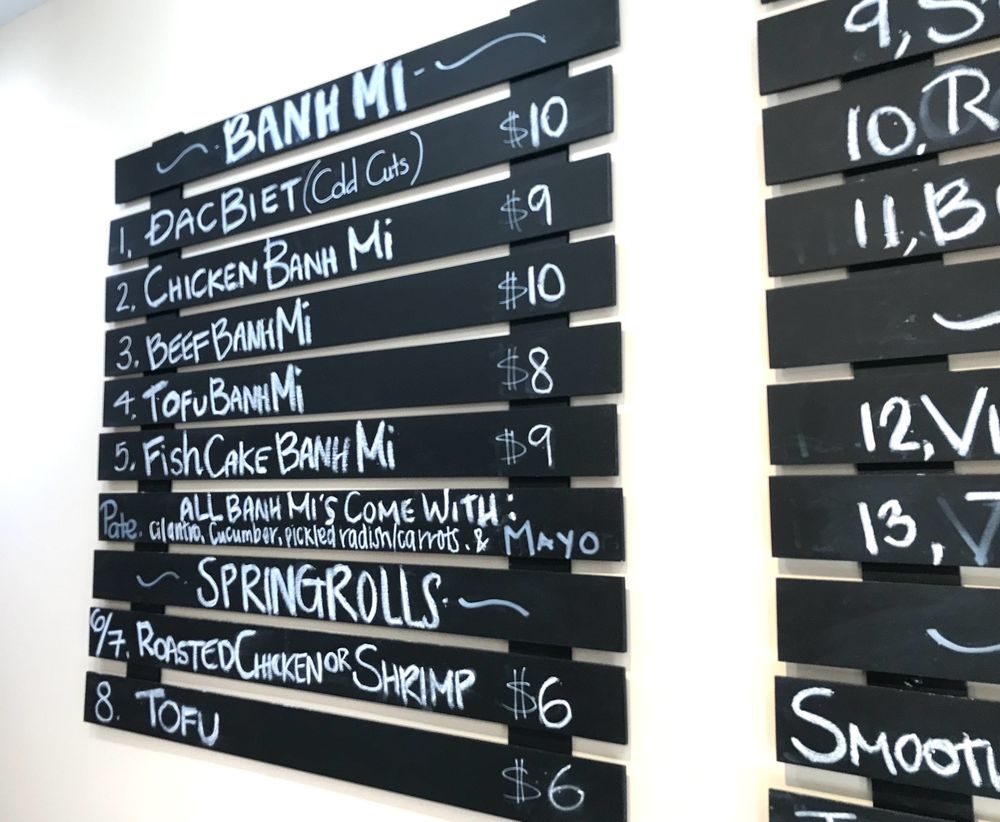 BANH MI
1. ĐAC BIET (Cold Cuts) $10
2. CHICKEN BANH Mi $9
3. BEEF BANH Mi $10
4. TOFU BANH Mi $8
5. FishCAKE BANH Mi $9
ALL BANH MI'S COME WITH:
Pate. cilantro, Cucumber, pickled radish/carrots. & MAYO
SPRINGROLLS
6/7. ROASTED CHICKEN OR SHRIMP $6
8. TOFU $6
9,
10.
11,
12,
13,